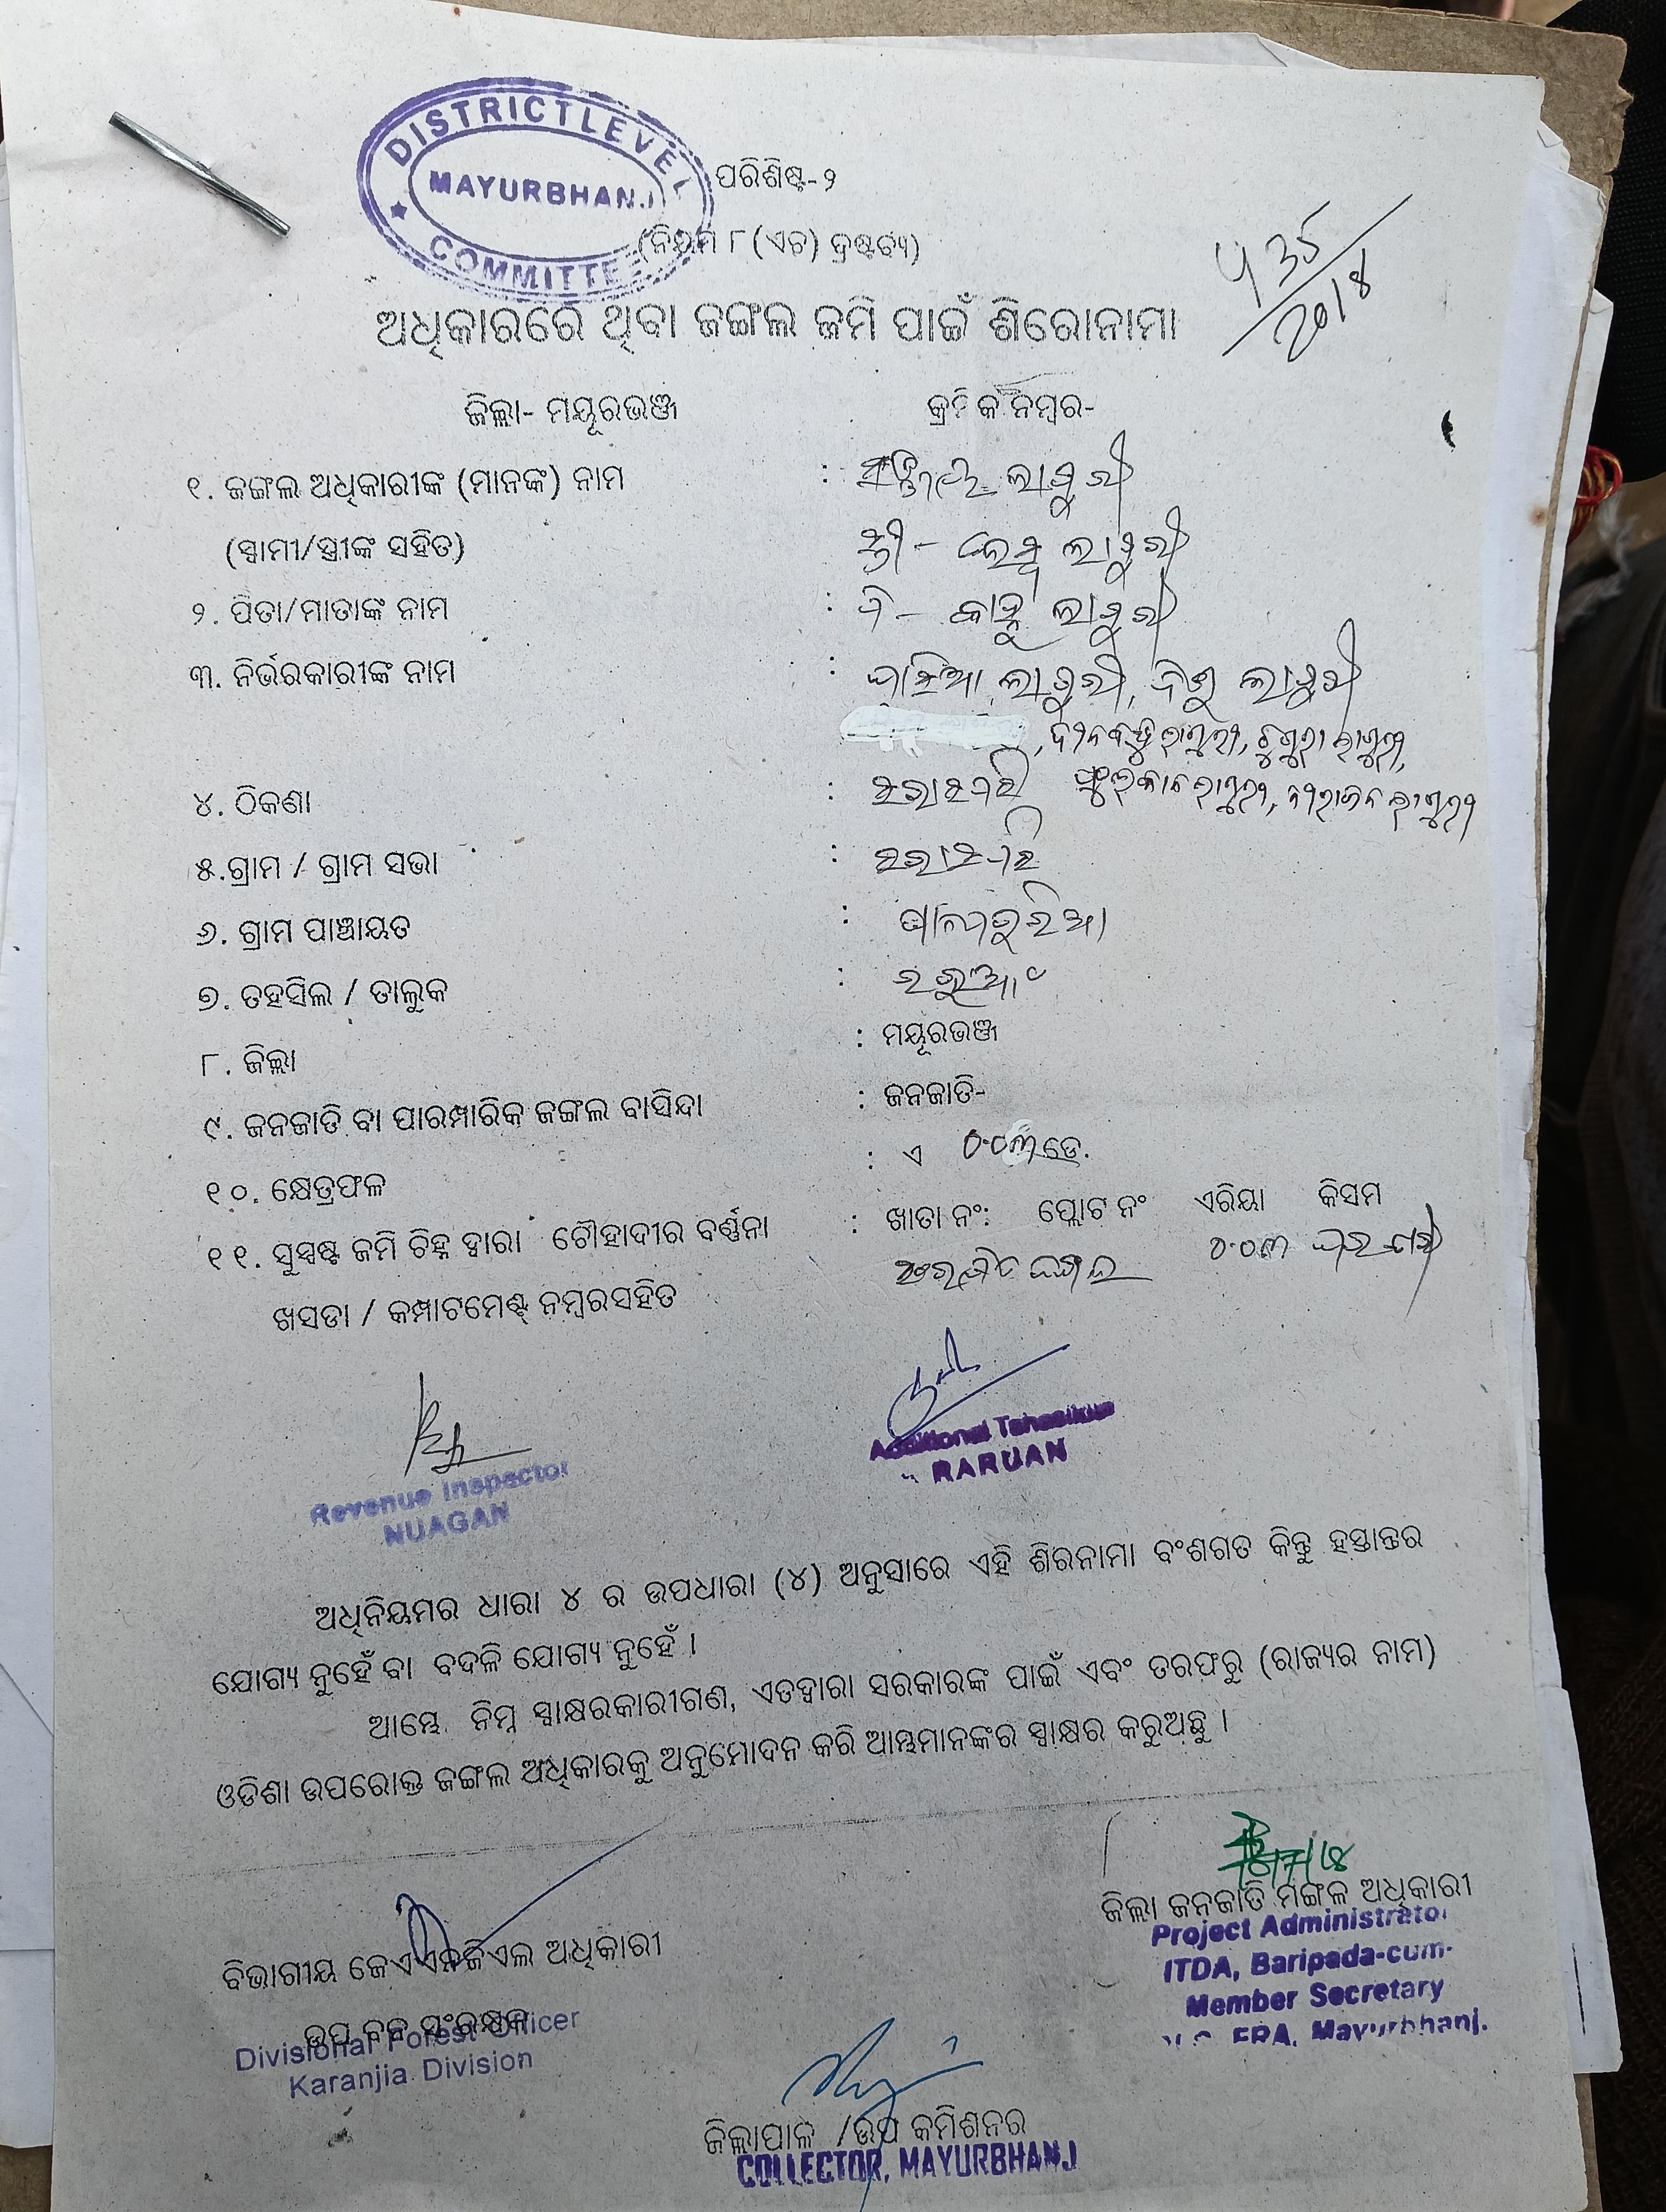 DISTRICT LEVEL
MAYURBHANJ
COMMITTEE
ପରିଶିଷ୍ଟ-୨
(ନିୟମ ୮(ଏଚ) ଦ୍ରଷ୍ଟବ୍ୟ)
ଅଧିକାରରେ ଥିବା ଜଙ୍ଗଲ ଜମି ପାଇଁ ଶିରୋନାମା
ଜିଲ୍ଲା- ମୟୂରଭଞ୍ଜ କ୍ରମିକ ନମ୍ବର-
୧. ଜଙ୍ଗଲ ଅଧିକାରୀଙ୍କ (ମାନଙ୍କ) ନାମ : ଲାଗୁରୀ
(ସ୍ୱାମୀ/ସ୍ତ୍ରୀଙ୍କ ସହିତ) ସ୍ତ୍ରୀ - ଲାଗୁରୀ
୨. ପିତା/ମାତାଙ୍କ ନାମ : ପି - କାହ୍ନୁ ଲାଗୁରୀ
୩. ନିର୍ଭରକାରୀଙ୍କ ନାମ : ଲାଗୁରୀ, ଲାଗୁରୀ
, ଦୀନବନ୍ଧୁ ଲାଗୁରୀ, ଲାଗୁରୀ,
୪. ଠିକଣା : ଲାଗୁରୀ, ଲାଗୁରୀ
୫.ଗ୍ରାମ / ଗ୍ରାମ ସଭା :
୬. ଗ୍ରାମ ପାଞ୍ଚାୟତ :
୭. ତହସିଲ / ତାଲୁକ : ରରୁଆଁ
୮. ଜିଲ୍ଲା : ମୟୂରଭଞ୍ଜ
୯. ଜନଜାତି ବା ପାରମ୍ପାରିକ ଜଙ୍ଗଲ ବାସିନ୍ଦା : ଜନଜାତି-
୧୦. କ୍ଷେତ୍ରଫଳ : ଏ ୦.୦୩ ଡେ.
୧୧. ସୁସ୍ପଷ୍ଟ ଜମି ଚିହ୍ନ ଦ୍ୱାରା ଚୌହାଦୀର ବର୍ଣ୍ଣନା : ଖାତା ନଂ: ପ୍ଲୋଟ ନଂ ଏରିୟା କିସମ
ଖସଡା / କମ୍ପାଟମେଣ୍ଟ ନମ୍ବରସହିତ ସଂରକ୍ଷିତ ଜଙ୍ଗଲ ୦.୦୩ ଘରବାରି
Revenue Inspector
NUAGAN
Additional Tahasildar
RARUAN
ଅଧିନିୟମର ଧାରା ୪ ର ଉପଧାରା (୪) ଅନୁସାରେ ଏହି ଶିରନାମା ବଂଶଗତ କିନ୍ତୁ ହସ୍ତାନ୍ତର
ଯୋଗ୍ୟ ନୁହେଁ ବା ବଦଳି ଯୋଗ୍ୟ ନୁହେଁ ।
ଆମ୍ଭେ ନିମ୍ନ ସ୍ୱାକ୍ଷରକାରୀଗଣ, ଏତଦ୍ୱାରା ସରକାରଙ୍କ ପାଇଁ ଏବଂ ତରଫରୁ (ରାଜ୍ୟର ନାମ)
ଓଡିଶା ଉପରୋକ୍ତ ଜଙ୍ଗଲ ଅଧିକାରକୁ ଅନୁମୋଦନ କରି ଆମ୍ଭମାନଙ୍କର ସ୍ୱାକ୍ଷର କରୁଅଛୁ ।
ଜିଲ୍ଲା ଜନଜାତି ମଙ୍ଗଳ ଅଧିକାରୀ
Project Administrator
ITDA, Baripada-cum-
Member Secretary
FRA, Mayurbhanj.
ବିଭାଗୀୟ ଜେଏଏନଜିଏଲ ଅଧିକାରୀ
ଉପ ବନ ସଂରକ୍ଷକ
Divisional Forest Officer
Karanjia Division
ଜିଲ୍ଲାପାଳ /ଉପ କମିଶନର
COLLECTOR, MAYURBHANJ